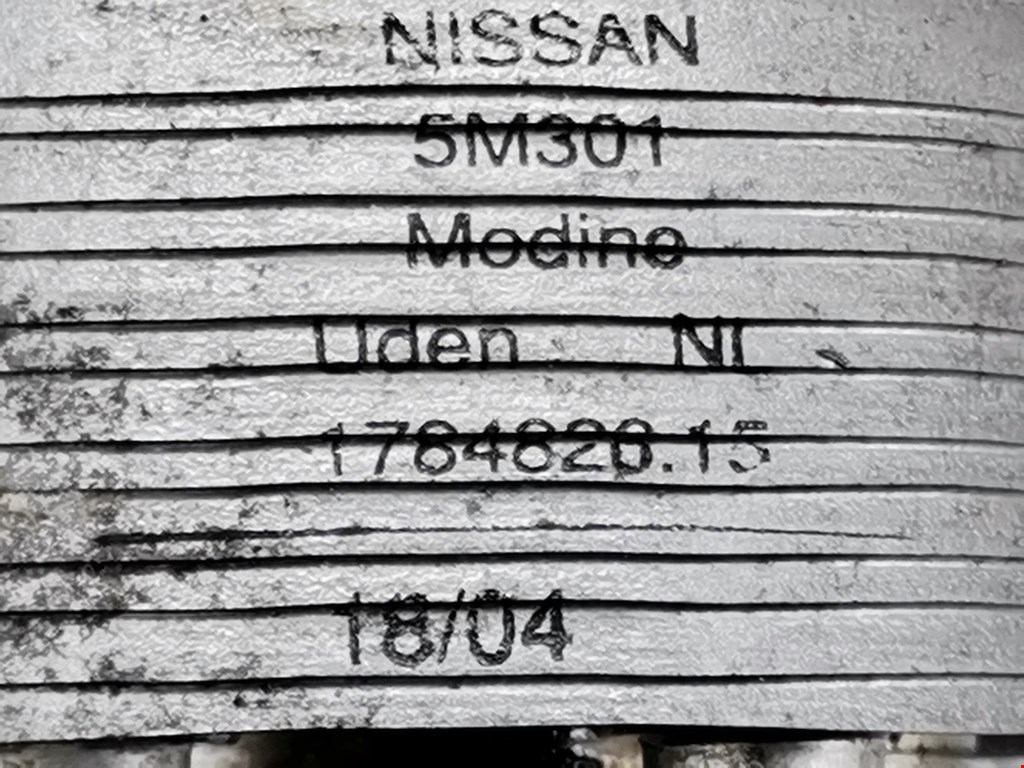 NISSAN
5M301
Modine
Uden NL
1784828.15
18/04